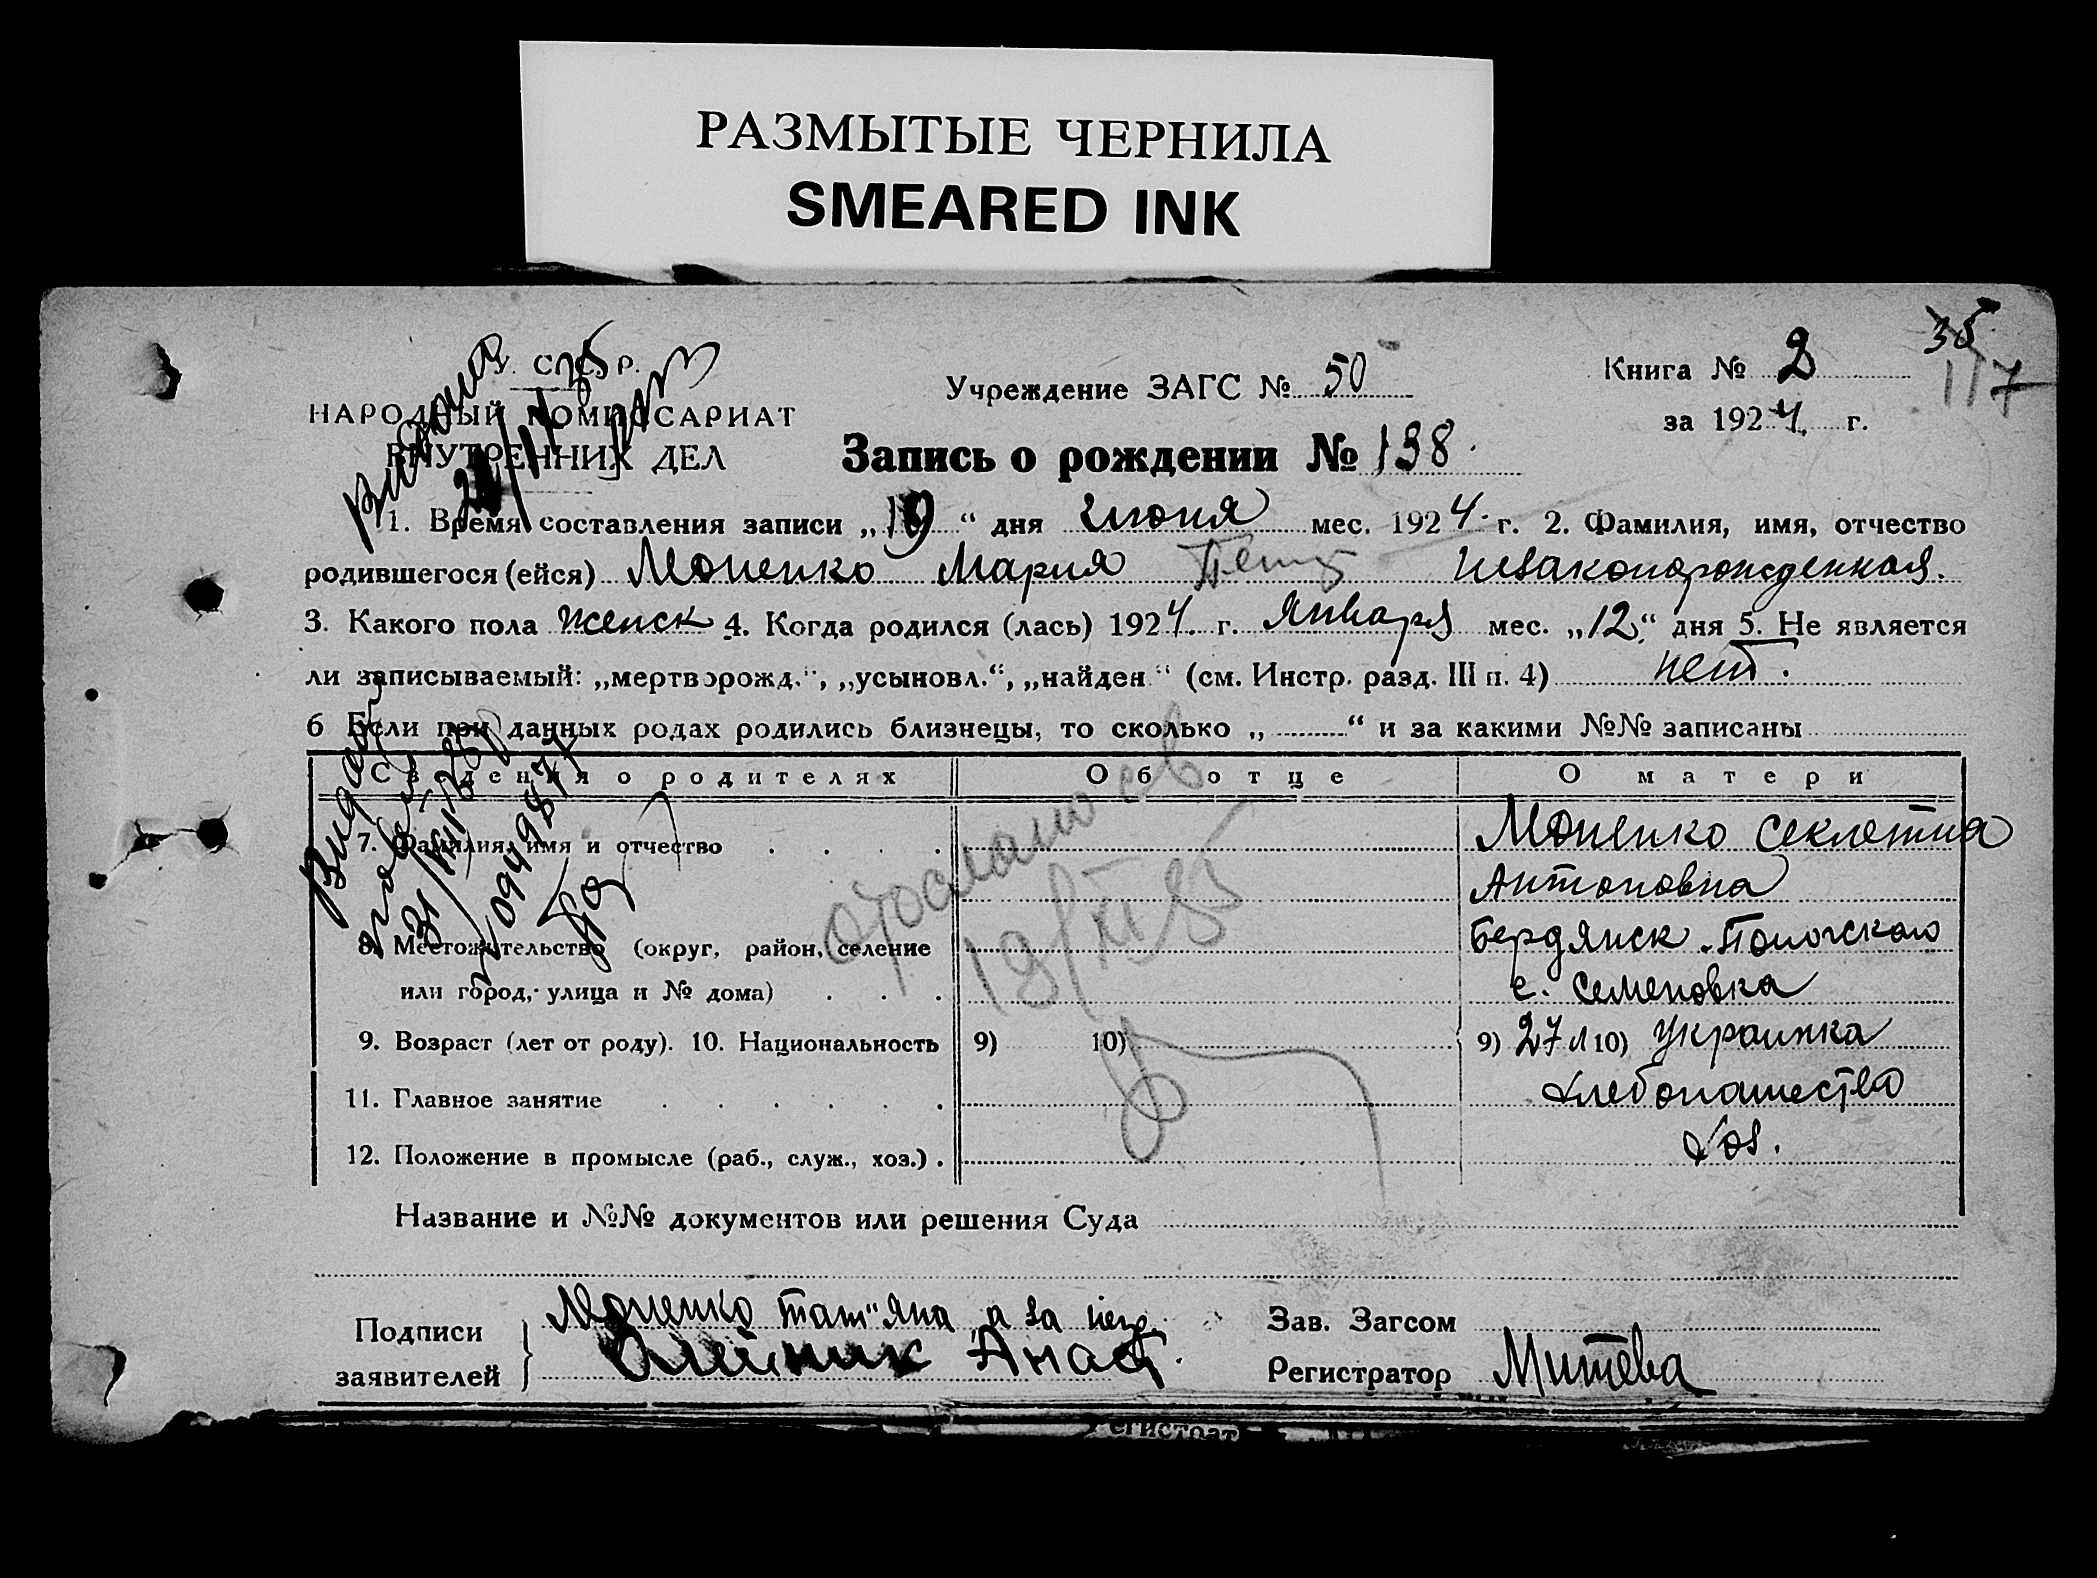 РАЗМЫТЫЕ ЧЕРНИЛА
SMEARED INK
У. С. С. Р.
НАРОДНЫЙ КОМИССАРИАТ
ВНУТРЕННИХ ДЕЛ
Учреждение ЗАГС № 50
Книга № 2
35
117
за 1924 г.
Запись о рождении № 138.
1. Время составления записи „19“ дня Июня мес. 1924 г. 2. Фамилия, имя, отчество
родившегося (ейся) Моненко Мария незаконорожденная.
3. Какого пола женск 4. Когда родился (лась) 1924 г. Января мес. „12“ дня 5. Не является
ли записываемый: „мертворожд.“, „усыновл.“, „найден“ (см. Инстр. разд. III п. 4) нет.
6 Если при данных родах родились близнецы, то сколько „ “ и за какими №№ записаны
Сведения о родителях Об отце О матери
7. Фамилия, имя и отчество Моненко Секлетиа
Антоновна
8. Местожительство (округ, район, селение Бердянск. Пологского
или город, улица и № дома) с. Семеновка
9. Возраст (лет от роду). 10. Национальность 9) 10) 9) 27 л 10) Украинка
11. Главное занятие Хлебопашество
12. Положение в промысле (раб., служ., хоз.) Хоз.
Название и №№ документов или решения Суда
Подписи заявителей Моненко Тат"яна, а за неgr
Олейник Анаст.
Зав. Загсом
Регистратор Митева